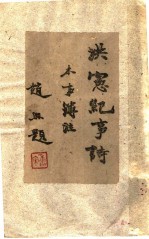 洪憲紀事詩
本事簿注
趙熙題